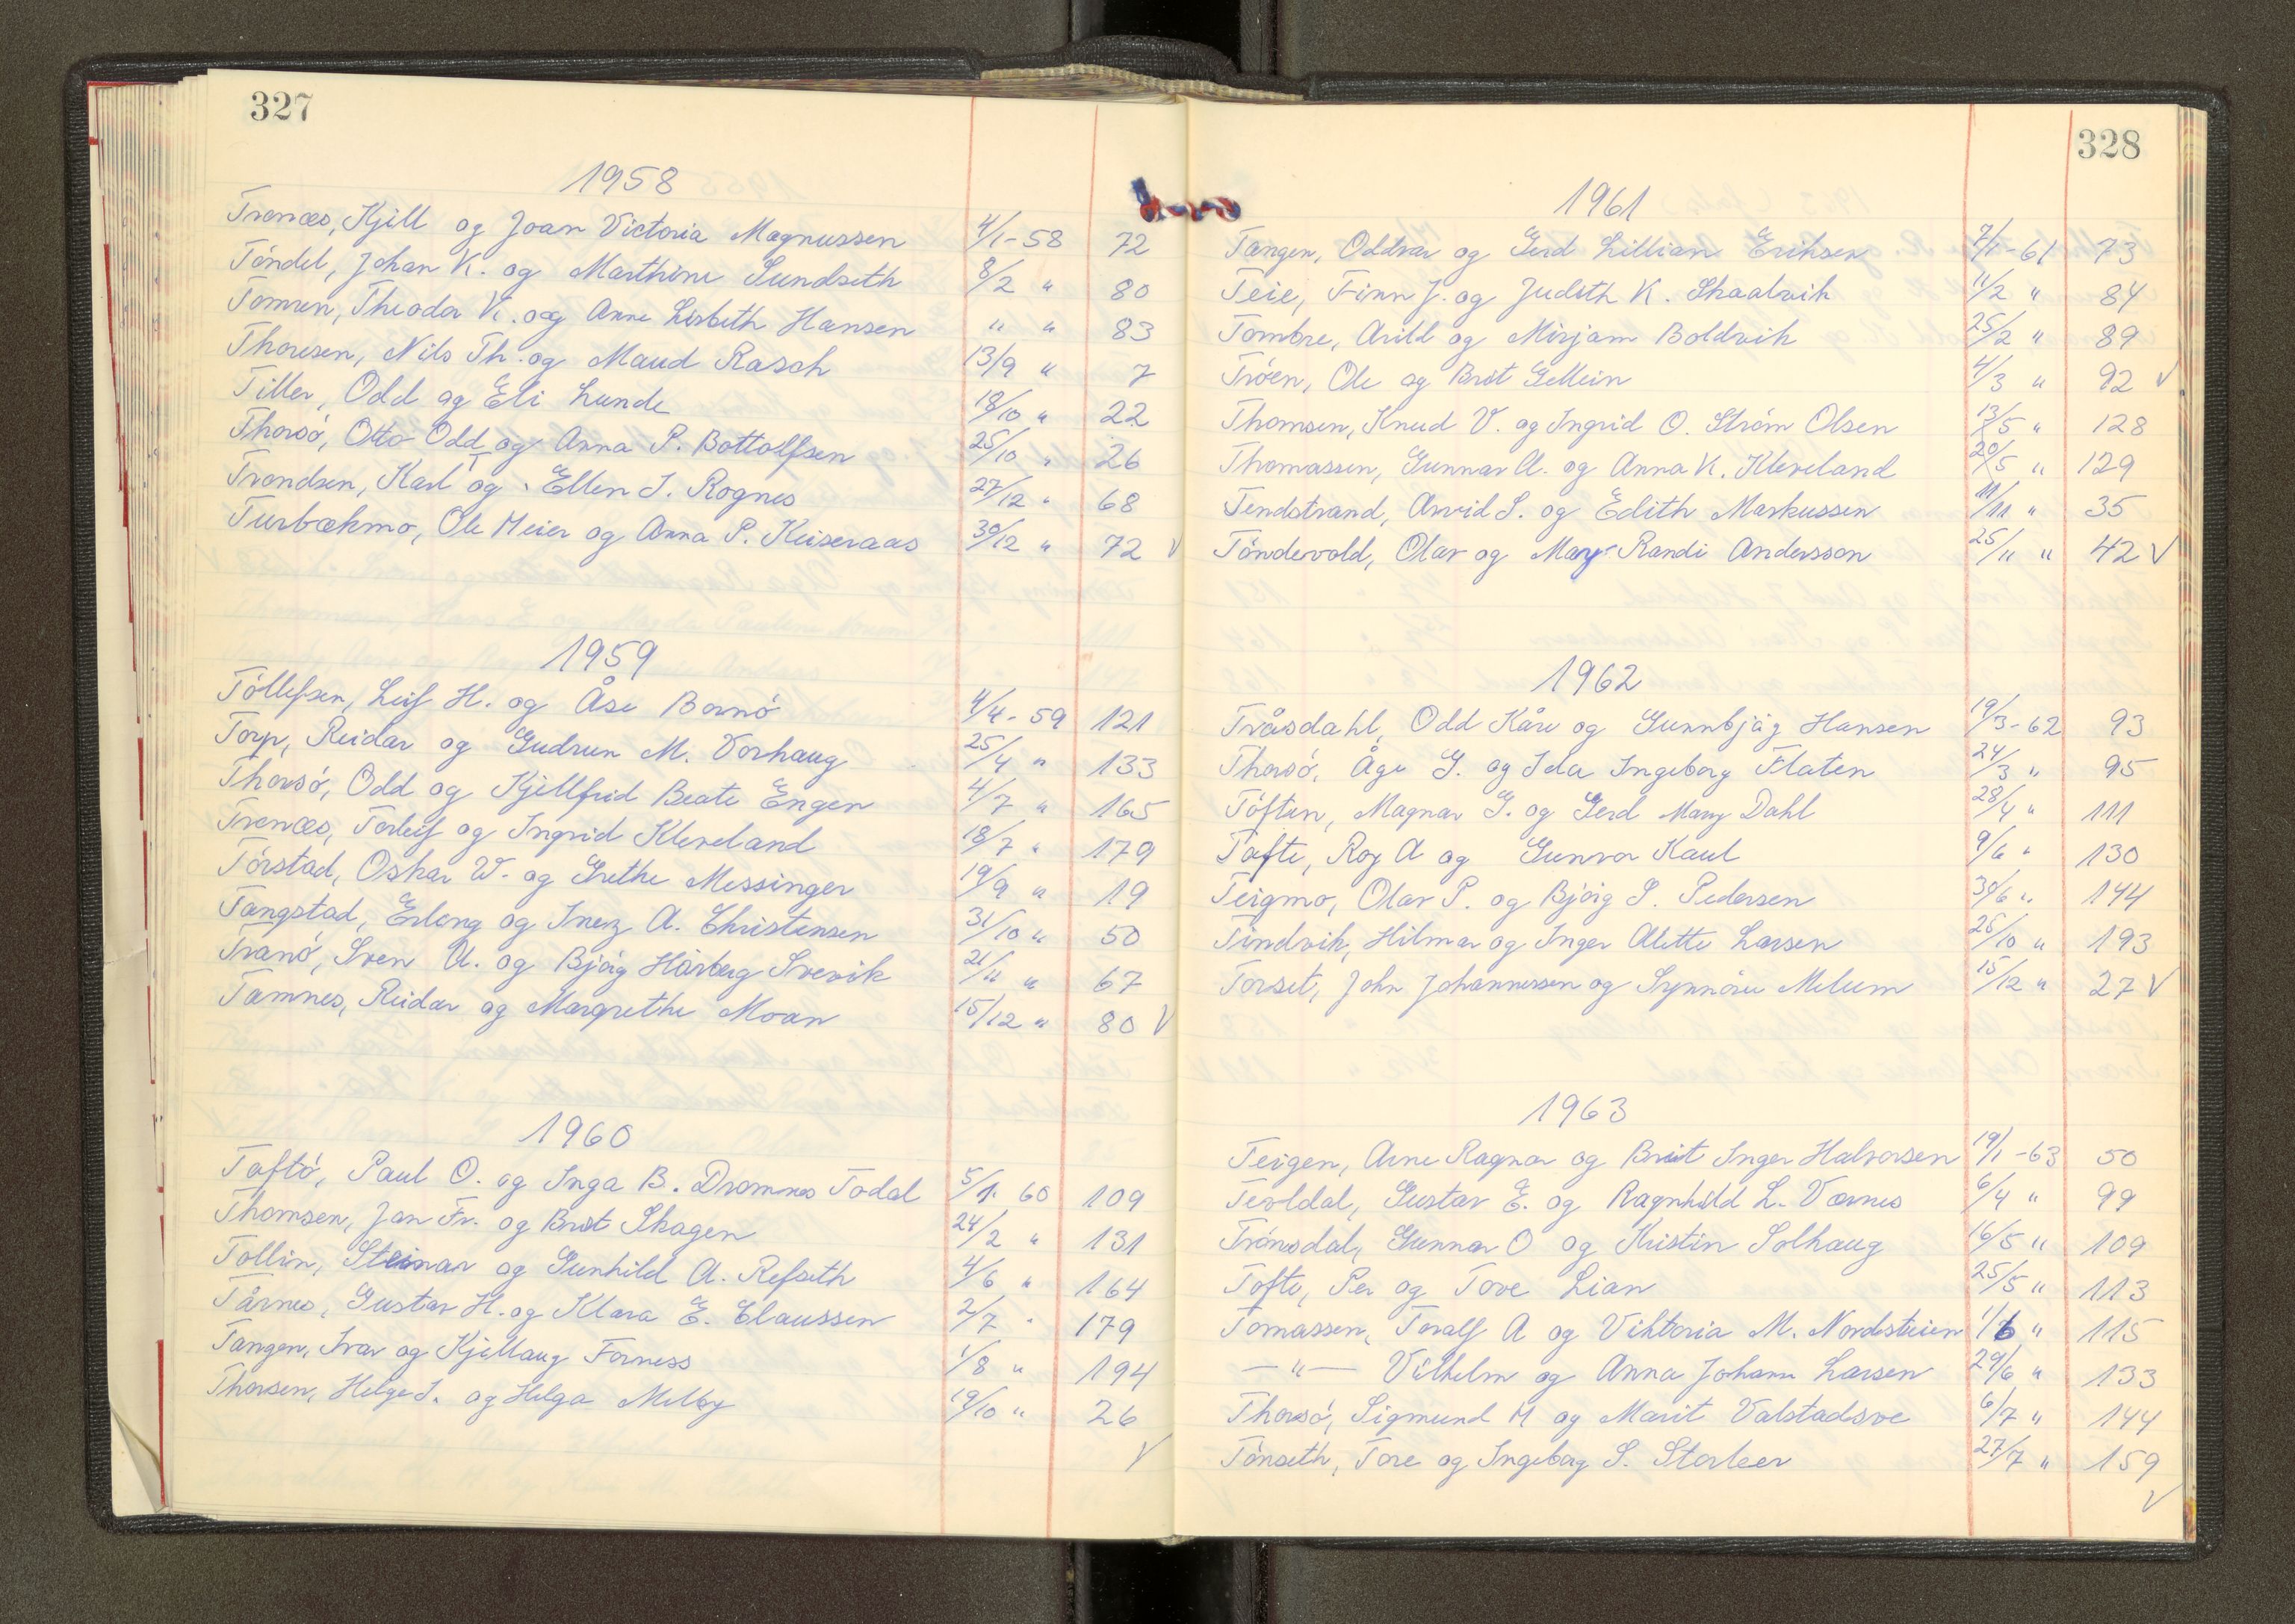 327
1958
Tranæs, Kjell og Joan Victoria Magnussen 4/1-58 72
Tøndel, Johan K. og Marthine Sundseth 8/2 " 80
Tomren, Theodor K. og Anne Lisbeth Hansen " " 83
Thoresen, Nils Th. og Maud Rasch 13/9 " 7
Tiller, Odd og Eli Lunde 18/10 " 22
Thorsø, Otto Odd og Anna P. Bottolfsen 25/10 " 26
Trondsen, Karl T og Ellen J. Rognes 27/12 " 68
Turbækmo, Ole Meier og Anna P. Keiseraas 30/12 " 72 V
1959
Tøllefsen, Leif H. og Åse Bornø 4/4-59 121
Torp, Reidar og Gudrun M. Vorhaug 25/4 " 133
Thorsø, Odd og Kjellfrid Beate Engen 4/7 " 165
Tranæs, Torleif og Ingrid Kleveland 18/7 " 179
Tørstad, Oskar W. og Grethe Messinger 19/9 " 19
Tangstad, Erling og Inez A. Christensen 31/10 " 50
Tranø, Sven A. og Bjørg Hårberg Svevik 21/11 " 67
Tamnes, Reidar og Margrethe Moan 15/12 " 80 V
1960
Toftø, Paul O. og Inga B. Dromnes Todal 5/1 60 109
Thomsen, Jan Fr. og Brit Skagen 24/2 " 131
Tollin, Steinar og Gunhild A. Refseth 4/6 " 164
Tårnes, Gustav H. og Klara E. Claussen 2/7 " 179
Tangen, Ivar og Kjellaug Forness 1/8 " 194
Thorsen, Helge J. og Helga Melby 19/10 " 26
V
328
1961
Tangen, Oddvar og Gerd Lillian Eriksen 7/1-61 73
Teie, Finn J. og Judith K. Skaalvik 11/2 " 84
Tombre, Arild og Mirjam Boldvik 25/2 " 89
Trøen, Ole og Brit Gellein 4/3 " 92 V
Thomsen, Knud V. og Ingrid O. Strøm Olsen 13/5 " 128
Thomassen, Gunnar A. og Anna K. Kleveland 20/5 " 129
Tendstrand, Arvid S. og Edith Markussen 11/11 " 35
Tøndevold, Olav og May-Randi Andersson 25/11 " 42 V
1962
Tråsdahl, Odd Kåre og Gunnbjåg Hansen 19/3-62 93
Thorsø, Åge G. og Ida Ingeborg Flaten 24/3 " 95
Tøften, Magnar G. og Gerd Mary Dahl 28/4 " 111
Tofte, Roy A og Gunvor Kaul 9/6 " 130
Teigmo, Olav P. og Bjørg S. Pedersen 30/6 " 144
Tindvik, Hilmar og Inger Alette Larsen 25/10 " 193
Torset, John Johannessen og Synnøve Melum 15/12 " 27 V
1963
Teigen, Arne Ragnar og Brit Inger Halvorsen 19/1-63 50
Tevldal, Gustav E. og Ragnhild L. Værnes 6/4 " 99
Trønsdal, Gunnar O og Kristin Solhaug 16/5 " 109
Tofte, Per og Tove Lian 25/5 " 113
Tomassen, Toralf A og Viktoria M. Nordsteien 1/6 " 115
— " — Vilhelm og Anna Johanne Larsen 29/6 " 133
Thorsø, Sigmund M og Marit Valstadsve 6/7 " 144
Tønseth, Tore og Ingeborg S. Storleer 27/7 " 159
V